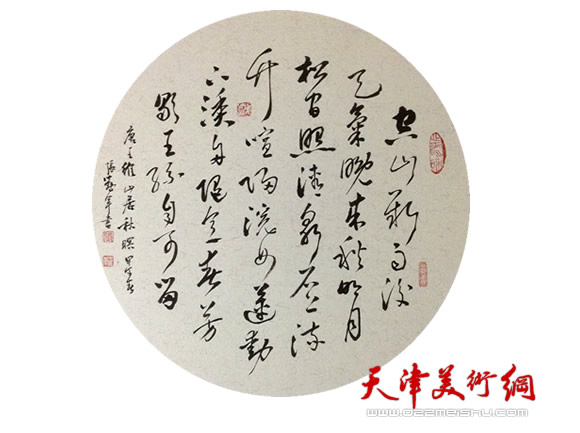 空山新雨後
天氣晚來秋明月
松間照清泉石上流
竹喧歸浣女蓮動
下漁舟隨意春芳
歇王孫自可留
唐王維山居秋暝甲午
年書
天津美術網
www.022meishu.com